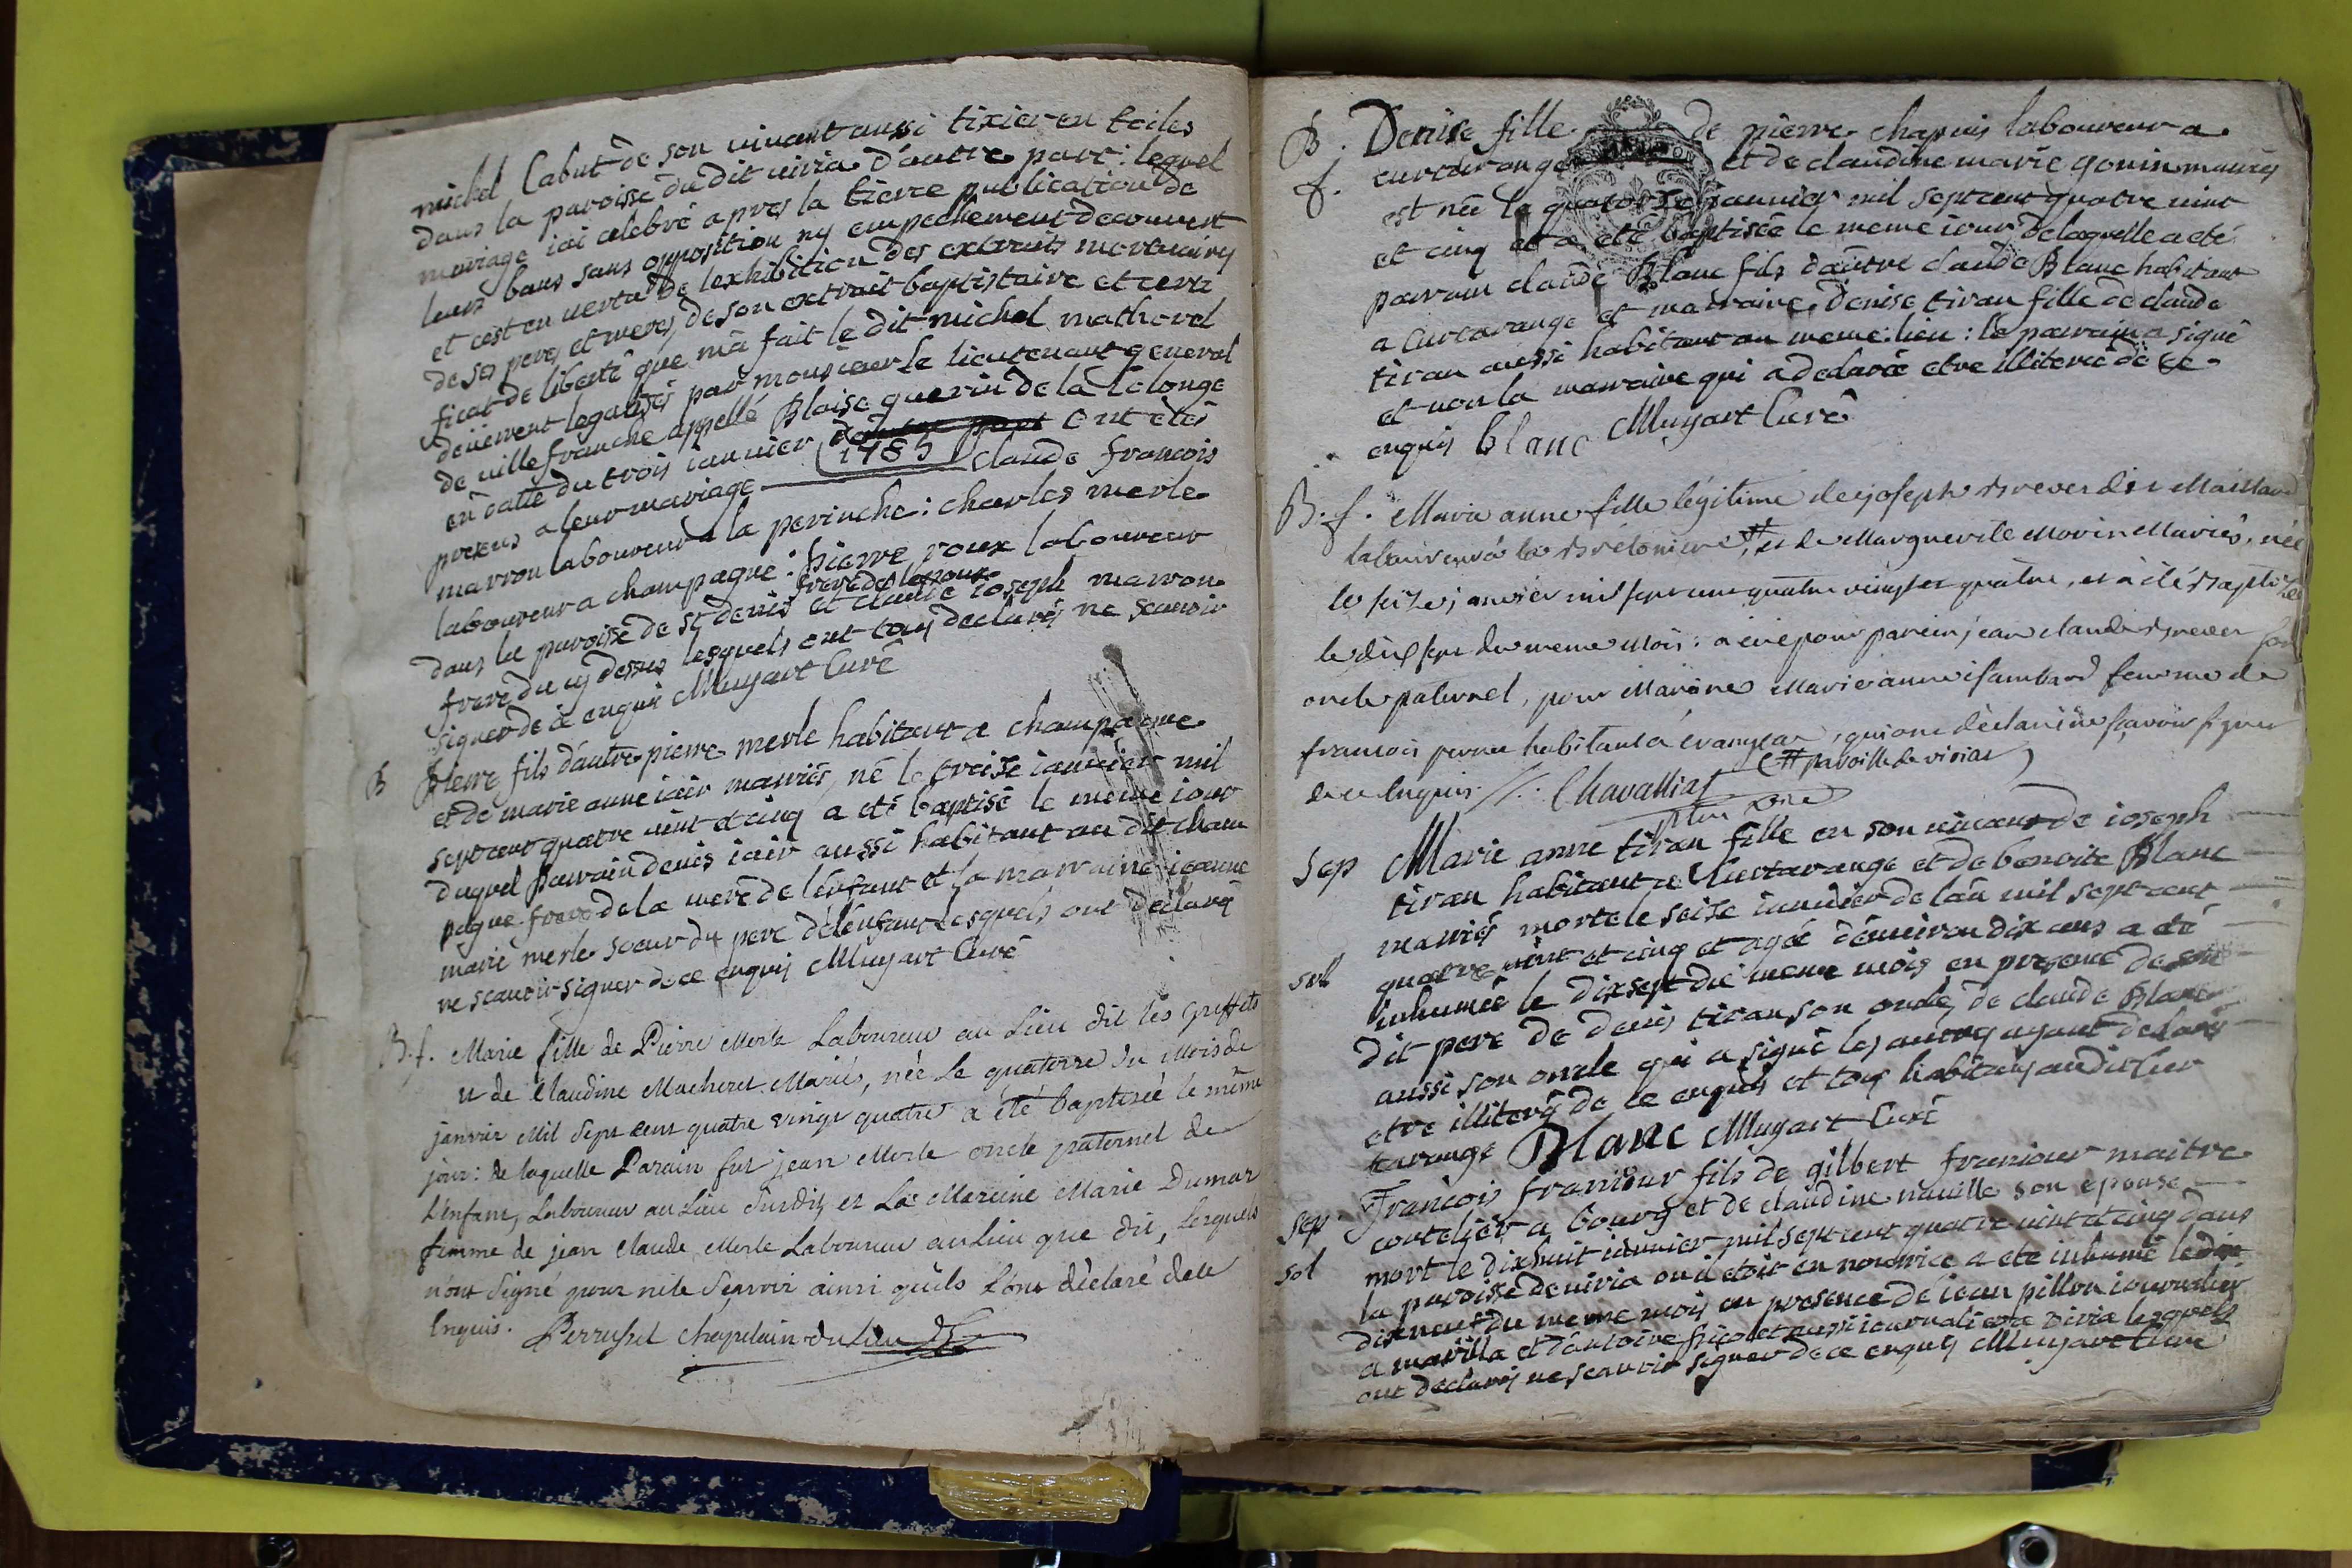 michel Cabut de son vivant aussi tixier en toiles
dans la paroisse du dit viria d'autre part: lequel
mariage iai celebré apres la tierce publication de
leurs bans sans opposition ny empechement decouvert
et c'est en vertu de lexhibition des extraits mortuaires
de ses peres et meres de son extrait baptistaire et certi
ficat de liberté que m'a fait le dit michel matherel
deüement legalisés par monsieur le lieutenant general
de villefranche appellé Blaise guerin de la
en datte du trois ianvier 1785 ont étés
presens a leur mariage claude francois
marron laboureur a la perinche: charles merle
laboureur a champagne: pierre roux laboureur
frere de lepoux
dans la paroisse de st denis et claude ioseph marron
frere du cy dessus lesquels ont tous declarés ne scavoir
signer de ce enquis Muyart Curé
B Pierre fils d'autre pierre merle habitant a champagne
et de marie anne iair mariés, né le treise ianvier mil
sept cent quatre vint et cinq a eté baptisé le meme iour
duquel parrain denis iair aussi habitant au dit cham
pagne frere de la mere de l'enfant et la marraine ieanne
marie merle soeur du pere de l'enfant lesquels ont declarés
ne scavoir signer de ce enquis Muyart Curé
B. f. Marie fille de Pierre Merle Laboureur au Lieu dit les Greffets
et de Claudine Macheret Mariés, née Le quatorze du Mois de
janvier Mil Sept cent quatre vingt quatre a été baptisée le même
jour: de laquelle Parain fut jean Merle oncle paternel de
L'enfant, Laboureur au Lieu Susdit, et La Mareine Marie Dumar
femme de jean Claude Merle Laboureur au Lieu que dit, Lesquels
n'ont Signé pour ne le Scavoir ainsi qu'ils L'ont déclaré de ce
Enquis. Perruset chapelain du lieu
B. Denise fille de pierre chapuis laboureur a
f. curtarange et de claudine marie gonin mariés
est née le quatorze ianvier mil sept cent quatre vint
et cinq et a eté baptisée le meme iour de laquelle a eté
parrain claude Blanc fils d'autre claude Blanc habitant
a Curtarange et marraine, denise tiran fille de claude
tiran aussi habitant au meme lieu: le parrain a signé
et non la marraine qui a declaré etre illiteré de ce
enquis blanc Muyart Curé
B. f. Marie anne fille légitime de joseph Brever dit Maillard
laboureur à la Brétoniere, # et de Marguerite Morin Mariés, née
le seize janvier mil sept cent quatre vingt et quatre, et à été Baptisée
le dix sept du meme Mois: a eu pour parein jean claude Brever son
oncle paternel, pour Marêne Marie anne isambard femme de
francois habitant à , qui ont déclaré ne scavoir signer
(# paroisse de viriat)
de ce Enquis. //. Chavalliat
Sep Marie anne tiran fille en son vivant de ioseph
tiran habitant a Curtarange et de benoite Blanc
mariés morte le seise ianvier de l'an mil sept cent
sol quatre vint et cinq et agée d'environ dix ans a eté
inhumée le dixsept du meme mois en presence de son
dit pere de denis tiran son oncle, de claude Blanc
aussi son oncle qui a signé les autres ayant declarés
etre illiterés de ce enquis et tous habitans audit Cur
tarange Blanc Muyart Curé
Sep Francois franiour fils de gilbert franiour maitre
coutelier a bourg et de claudine naville son epouse
sol mort le dixhuit ianvier mil sept cent quatre vint et cinq dans
la paroisse de viria ou il etoit en nourrice a eté inhumé le dix
dixneuf du meme mois en presence de iean pillon iournalier
a marilla et d'antoine fricolet aussi iournalier a viria lesquels
ont declarés ne scavoir signer de ce enquis Muyart Curé